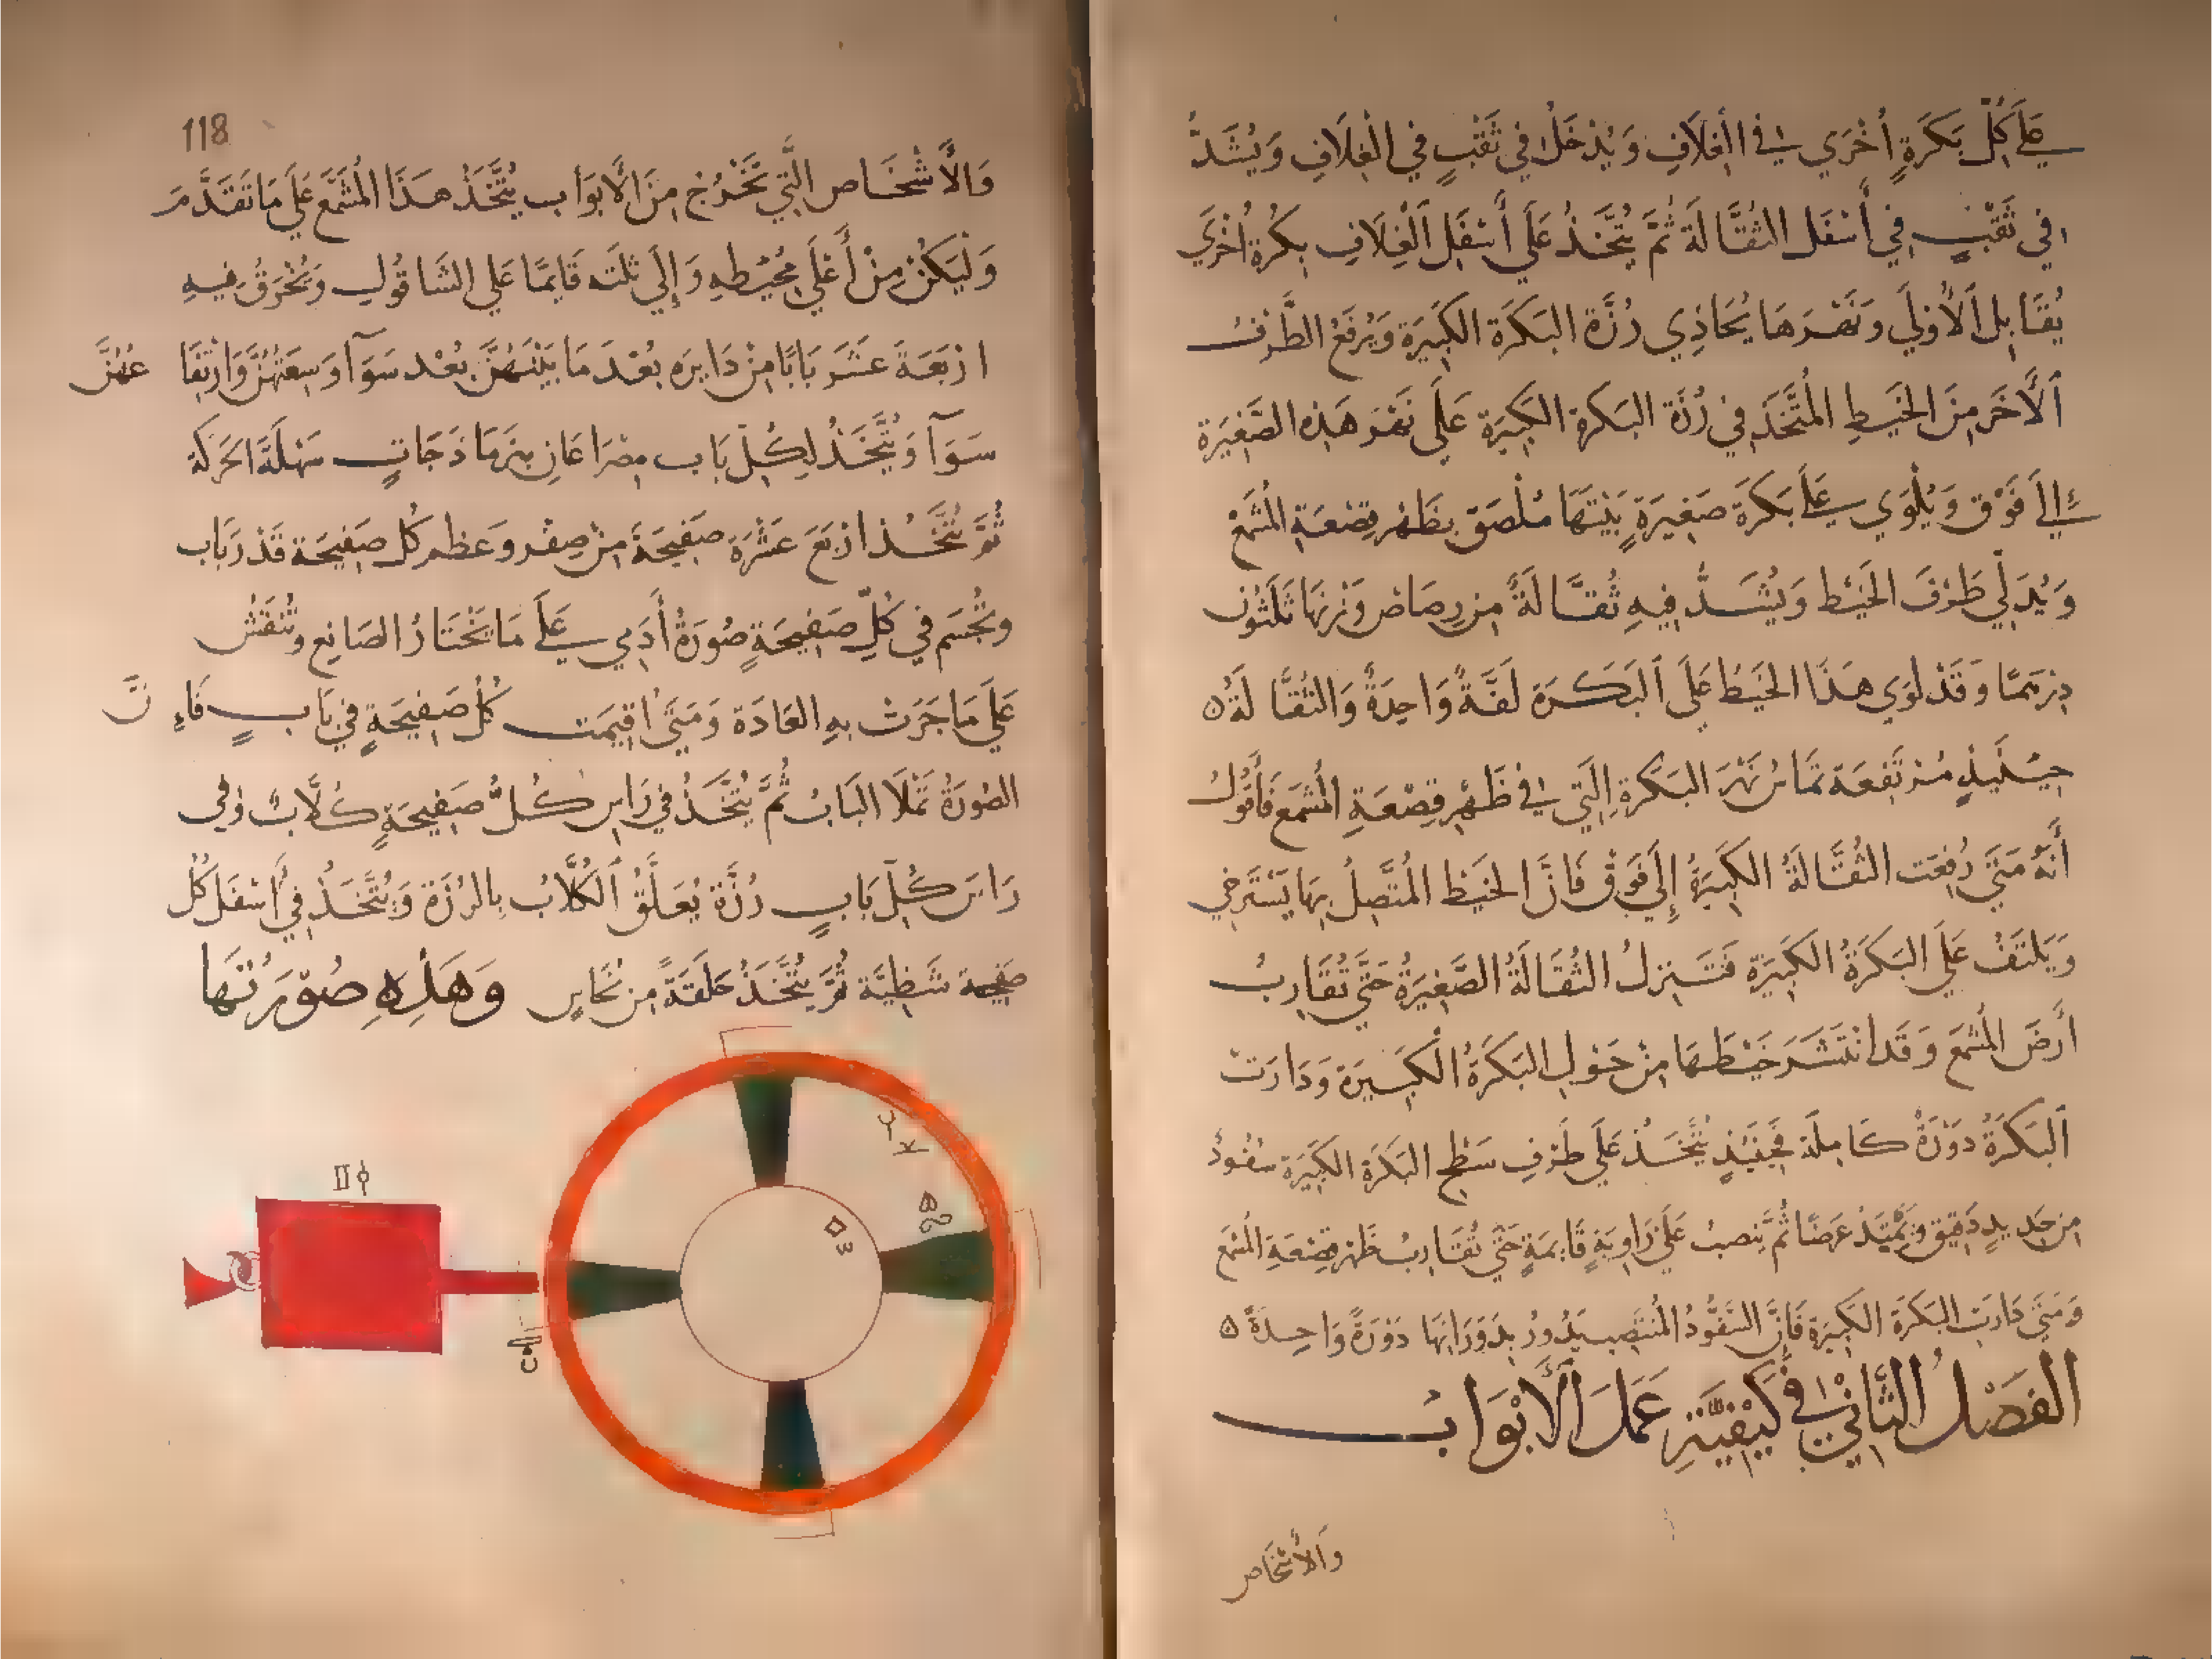 عَلَي كُلّ بَكَرَةٍ أُخْرَي فِي الْغِلَافِ وَيُدْخَلُ فِي ثَقْبٍ فِي الْغِلَافِ وَيُشَدُّ
فِي ثَقْبٍ فِي أَسْفَل الثقَّالَة ثُمَّ يُتَّخَذُ عَلَي أَسْفَلِ الْغِلَافِ بكرَة أُخْرَي
يُقَابِل الْأُولَي وَنَهْرهَا يُحَاذِي رُزَّة البَكَرَة الكَبِيرَة وَيُرفَعُ الطَّرَفُ
الْآخَر مِنَ الخَيْطِ المُتَّخَذِ فِي رُزَّة البَكَرة الكَبِيَرة عَلَي نَهْر هَذِه الصَّغِيرَة
إِلَي فَوْق وَيُلْوَي عَلَي بَكَرَة صَغِيرَةٍ بَيْتهَا مُلْصَق بظَهْر قِصْعَةِ المُشَمَّع
وَيُدَلّي طَرَف الخَيْط وَيُشَدُّ فِيهِ ثُقَّالَةً مِن رصَاص وَزنهَا ثَلَثُون
دِرْهَمًا وَقَدْ لُوِي هَذَا الخَيْطُ عَلَي الْبَكَرَة لَفَّةً وَاحِدَةً وَالثُقَّالَةُ
حِيْنَئِذٍ مُرْتَفِعَة تمَاسُّ نَهْرَ البَكَرَةِ الَتِي فِي ظَهْر قِصْعَةِ المُشَمَع فَأَقُولُ
أَنَّهُ مَتَي رُفِعَت الثُقَّالَةُ الكَبِيرَةُ إِلَي فَوْقُ فَإنَّ الخَيْط المُتَّصِلُ بِهَا يَسْتَرخِي
وَيَلتَفُّ عَلَي البَكَرَةُ الكَبِيرَة فَتَنزلُ الثُقَالَةُ الصَّغِيرَةُ حَتَّي تُقَاربُ
أَرْضَ المُشَمَع وَقَد انْتَشَرَ خَيْطهَا مِنْ حَوْلِ البَكَرَةُ الْكَبِيرَة وَدَارَتْ
الْبَكَرَةُ دَوْرَةً كَامِلَة فَحِينَئِذٍ يُتَّخَذ عَلَي طَرَفِ سَطْح البَكَرَة الكَبِيَرة سَفُّودٌ
مِن حَدِيدٍ دَقِيق وَيُمَدُّ عَرضًا ثُمَّ يُنصبُ عَلَي زَاوِيَةٍ قَايِمَةٍ حَتَّي يُقَاربُ ظَهْر قِصْعَةِ المُشَمَع
وَمَتَي دَارَت البَكَرَة الكَبِيَرة فَإنَّ السَفُّودُ المُنتَصِب يَدُورُ بِدَوَرَانِهَا دَوْرَةً وَاحِدَةً
الفَصْلُ الثَّانِي فِي كَيْفِيَّةِ عَمَل الْأَبْوَابُ
وَالأَشْخَاص
118
وَالْأَشْخَاص الَّتِي تَخْرُج مِنَ الْأَبوَاب يُتَّخَذُ هَذَا المُشَمَّع عَلَي مَا تَقَدَّمَ
وَلْيَكُنْ مِنْ أَعْلَي مُحِيْطِهِ وَإِلَي ثلثه قَايِمًا عَلَي الشَاقُولِ وَيُخْرَقُ فِيهِ
ارْبَعَةَ عَشَرَ بَابًا مِنْ دَايرَه بُعْدَ مَا بَيْنَهُنَّ بُعْد سَوَآ وَسِعَتهُنَّ وَارْتِفَاعهُنَّ
سَوَآ وَيُتَّخَذُ لِكُلّ بَاب مِصْرَاعَانِ بنَرمَاذَجَاتٍ سَهْلَةَ الحَرَكَة
ثُمَّ يُتَّخَذ ارْبَعَ عَشْرَة صَفِيحَةً مِنْ صِفْر وَعظم كُل صَفِيحَة قَدْر بَاب
وَيُجْسَم فِي كُلِّ صَفِيحَةٍ صُورَةُ أَدَمِي عَلَي مَا يَخْتَارُ الصَانِع وَتُنقَشُ
عَلَي مَا جَرَتْ بِهِ العَادَة وَمَتَي اُقِيمَت كُلُّ صَفِيحَةٍ فِي بَابٍ فَإِنَّ
الصُورَةُ تَمْلَا البَابُ ثُمَّ يُتَّخَذُ فِي رَاسِ كُلّ صَفِيحَةٍ كُلَّابٌ وَفِي
رَاس كُلّ بَابٍ رُزَّة يُعَلَّقُ الْكُلَّابُ بِالرُزَّة وَيُتَّخَذُ فِي أَسْفَل كُل
صَفِيحة شَظِيَّة ثُمَّ يُتَّخَذُ حَلَقَةً مِن نُحَاسٍ وَهَذِهِ صُوْرَتُهَا